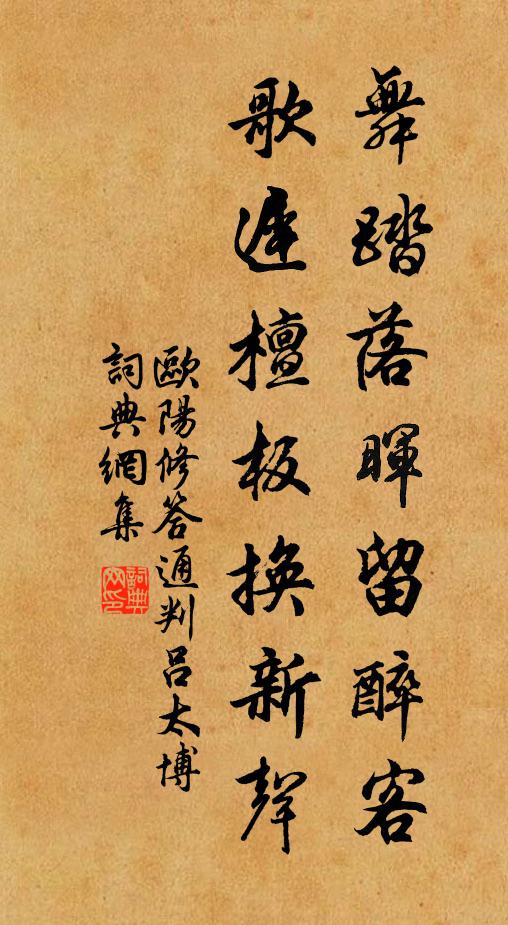 舞踏落暉留醉客
歌遲檀板換新聲
歐陽修答通判呂太博
詞典網集
詞典
网印